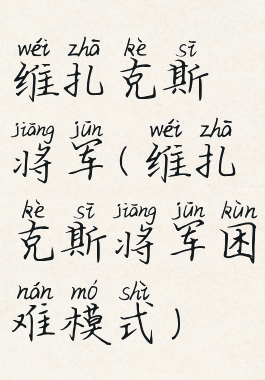 wéi zhā kè sī
维扎克斯
jiāng jūn wéi zhā
将军(维扎
kè sī jiāng jūn kùn
克斯将军困
nán mó shì
难模式)